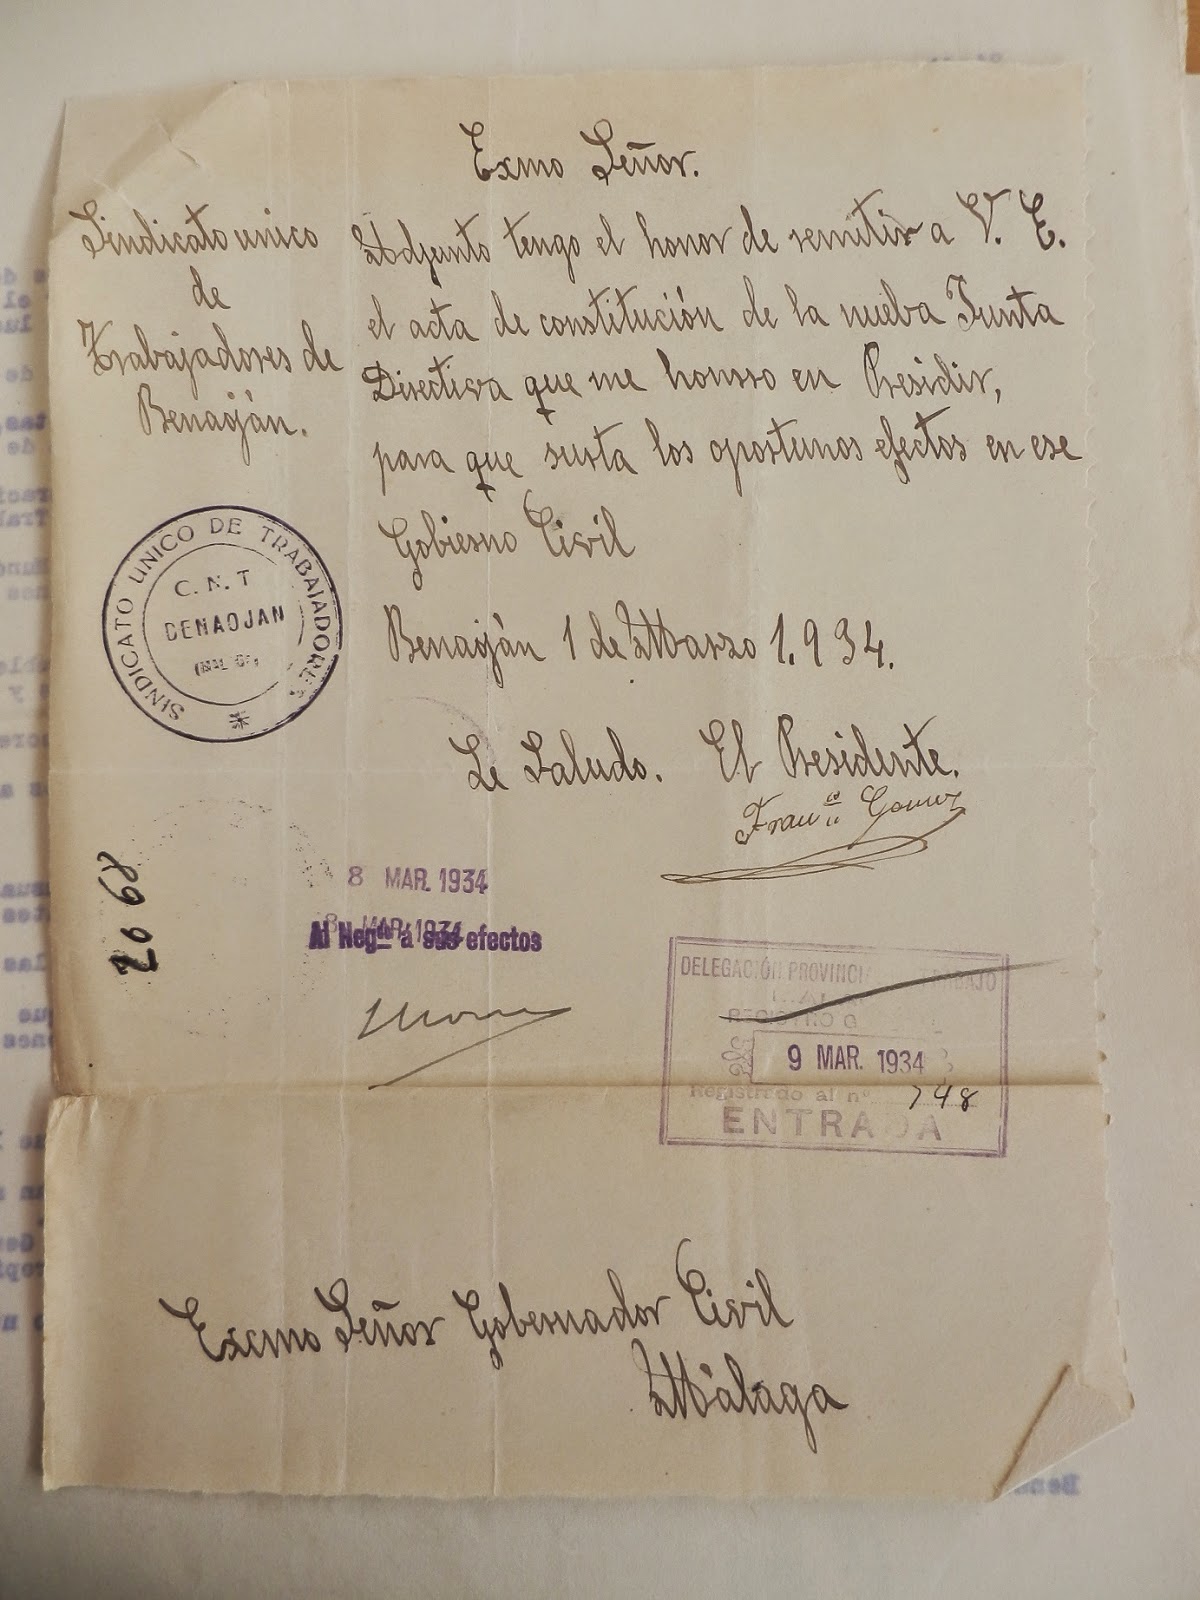 Exmo Señor.
Sindicato unico
de
Trabajadores de
Benaoján.
Adjunto tengo el honor de remitir a V. E.
el acta de constitución de la nueba Junta
Directiva que me honrro en Presidir,
para que surta los oportunos efectos en ese
Gobierno Civil
Benaoján 1 de Marzo 1.934.
Le Saludo. El Presidente.
Franco Gomez
SINDICATO UNICO DE TRABAJADORES
C. N. T
BENAOJAN
8 MAR. 1934
8 MAR. 1934
Al Negdo a sus efectos
DELEGACIÓN PROVINCI TRABAJO
REGISTRO G
9 MAR. 1934
Registrado al nº 748
ENTRADA
Excmo Señor Gobernador Civil
Málaga